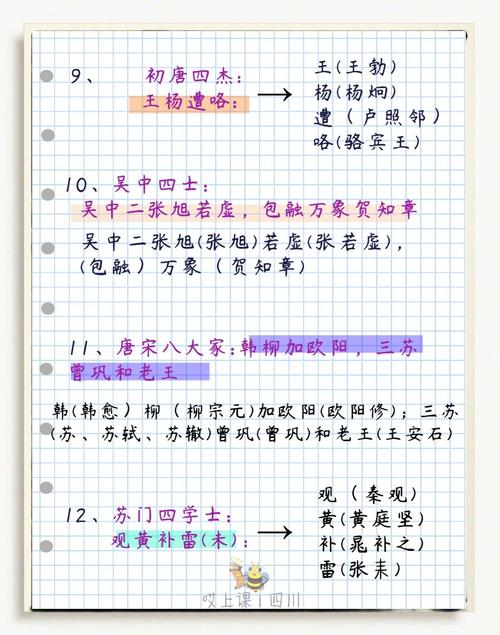 9、 初唐四杰:
王杨遭咯:
王(王勃)
杨(杨炯)
遭(卢照邻)
咯(骆宾王)
10、吴中四士:
吴中二张旭若虚,包融万象贺知章
吴中二张旭(张旭)若虚(张若虚),
(包融)万象(贺知章)
11、唐宋八大家:韩柳加欧阳,三苏
曾巩和老王
韩(韩愈)柳(柳宗元)加欧阳(欧阳修);三苏
(苏、苏轼、苏辙)曾巩(曾巩)和老王(王安石)
12、苏门四学士:
观黄补雷(耒):
观(秦观)
黄(黄庭坚)
补(晁补之)
雷(张耒)
哎上课|四川